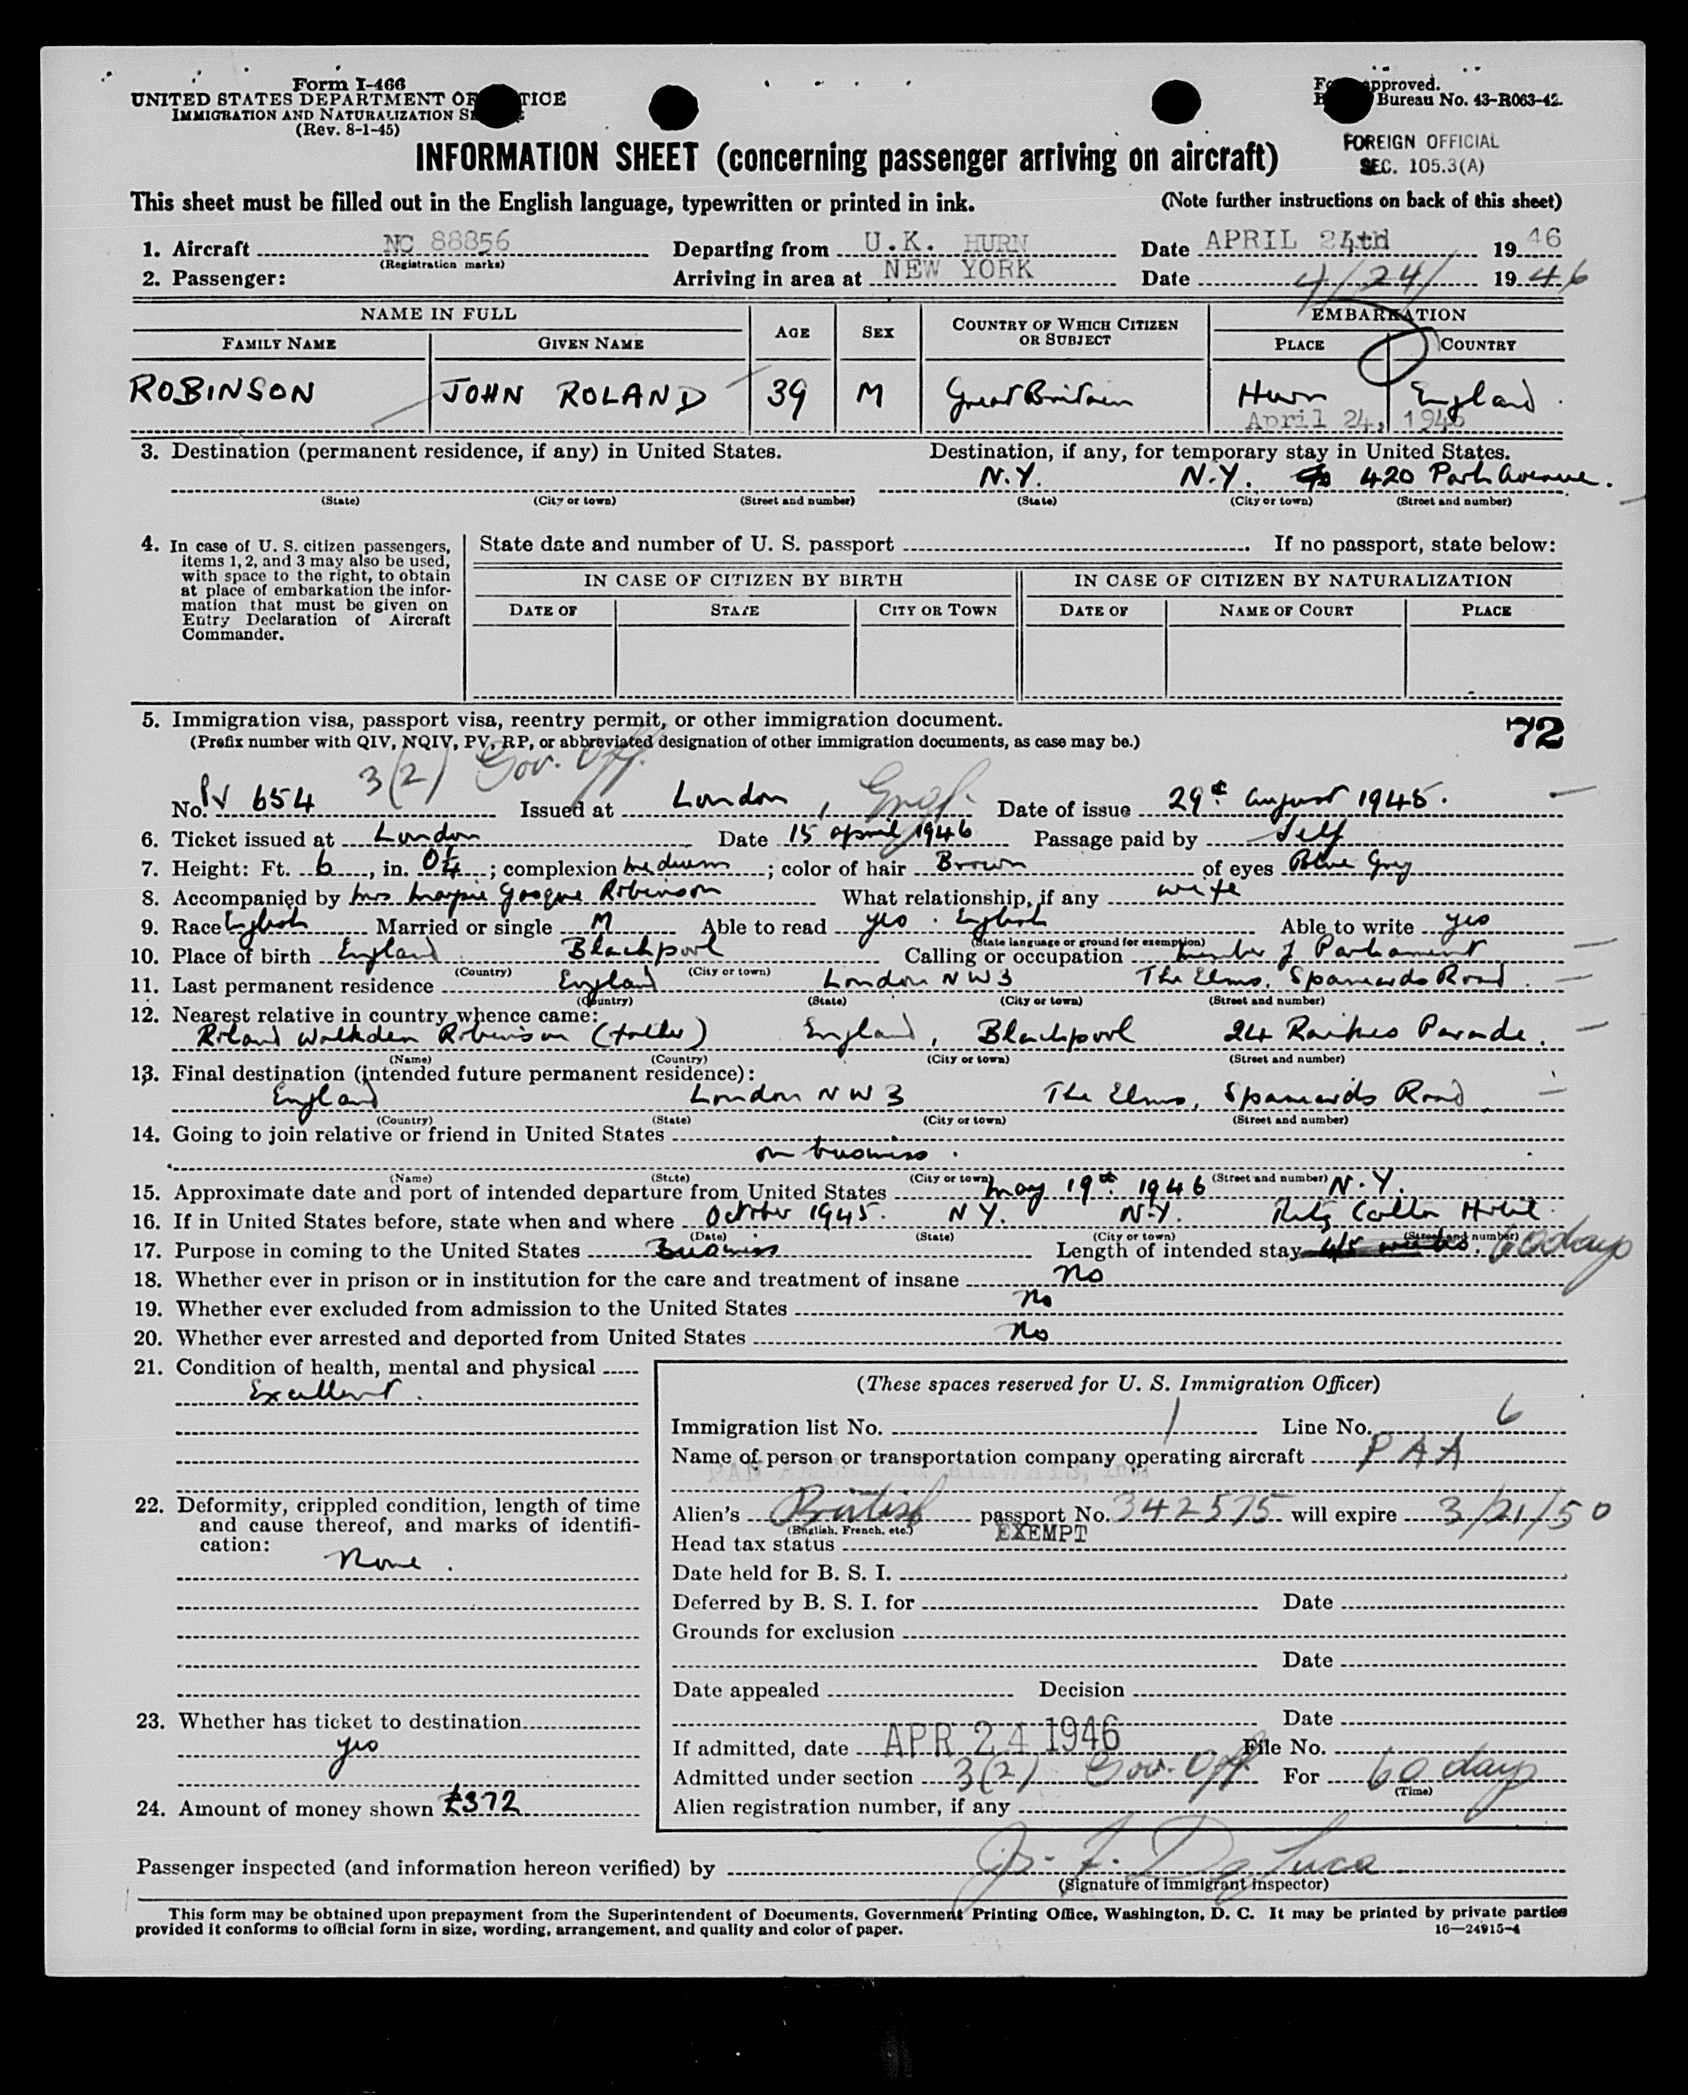 Form I-466
UNITED STATES DEPARTMENT OF TICE
IMMIGRATION AND NATURALIZATION S
(Rev. 8-1-45)
Fo approved.
B Bureau No. 43-R063-42.
FOREIGN OFFICIAL
SEC. 105.3(A)
INFORMATION SHEET (concerning passenger arriving on aircraft)
This sheet must be filled out in the English language, typewritten or printed in ink. (Note further instructions on back of this sheet)
1. Aircraft NC 88856 Departing from U.K. HURN Date APRIL 24th 1946
(Registration marks)
2. Passenger: Arriving in area at NEW YORK Date 4/24/ 1946
NAME IN FULL AGE SEX COUNTRY OF WHICH CITIZEN OR SUBJECT EMBARKATION
FAMILY NAME GIVEN NAME PLACE COUNTRY
ROBINSON JOHN ROLAND 39 M Great Britain Hurn England.
April 24, 1946
3. Destination (permanent residence, if any) in United States. Destination, if any, for temporary stay in United States.
N.Y. N.Y. c/o 420 Park Avenue.
(State) (City or town) (Street and number) (State) (City or town) (Street and number)
4. In case of U. S. citizen passengers, items 1, 2, and 3 may also be used, with space to the right, to obtain at place of embarkation the information that must be given on Entry Declaration of Aircraft Commander.
State date and number of U. S. passport . If no passport, state below:
IN CASE OF CITIZEN BY BIRTH IN CASE OF CITIZEN BY NATURALIZATION
DATE OF STATE CITY OR TOWN DATE OF NAME OF COURT PLACE
5. Immigration visa, passport visa, reentry permit, or other immigration document. 72
(Prefix number with QIV, NQIV, PV, RP, or abbreviated designation of other immigration documents, as case may be.)
3(2) Gov. Off.
No. PV 654 Issued at London, Engl. Date of issue 29th August 1945.
6. Ticket issued at London Date 15 April 1946 Passage paid by Self
7. Height: Ft. 6, in. 0¼; complexion medium; color of hair Brown of eyes Blue Grey
8. Accompanied by Mrs Maysie Gasque Robinson What relationship, if any wife
9. Race English Married or single M Able to read yes. English Able to write yes
(State language or ground for exemption)
10. Place of birth England Blackpool Calling or occupation Member of Parliament
(Country) (City or town)
11. Last permanent residence England London NW3 The Elms, Spaniards Road.
(Country) (State) (City or town) (Street and number)
12. Nearest relative in country whence came:
Roland Walkden Robinson (father) England, Blackpool 24 Raikes Parade.
(Name) (Country) (City or town) (Street and number)
13. Final destination (intended future permanent residence):
England London NW3 The Elms, Spaniards Road
(Country) (State) (City or town) (Street and number)
14. Going to join relative or friend in United States
on business.
(Name) (State) (City or town) (Street and number)
15. Approximate date and port of intended departure from United States May 19th 1946 N.Y.
16. If in United States before, state when and where October 1945. N.Y. N.Y. Ritz Carlton Hotel.
(Date) (State) (City or town) (Street and number)
17. Purpose in coming to the United States Business Length of intended stay 4/5 weeks. 60 days
18. Whether ever in prison or in institution for the care and treatment of insane no
19. Whether ever excluded from admission to the United States no
20. Whether ever arrested and deported from United States no
21. Condition of health, mental and physical
Excellent.
22. Deformity, crippled condition, length of time and cause thereof, and marks of identification:
None.
23. Whether has ticket to destination
yes
24. Amount of money shown £372
(These spaces reserved for U. S. Immigration Officer)
Immigration list No. 1 Line No. 6
Name of person or transportation company operating aircraft PAA
PAN AMERICAN AIRWAYS, INC.
Alien's British passport No. 342575 will expire 3/21/50
(English, French, etc.)
Head tax status EXEMPT
Date held for B. S. I.
Deferred by B. S. I. for Date
Grounds for exclusion
Date
Date appealed Decision
Date
If admitted, date APR 24 1946 File No.
Admitted under section 3(2) Gov. Off. For 60 days
(Time)
Alien registration number, if any
Passenger inspected (and information hereon verified) by
(Signature of immigrant inspector)
This form may be obtained upon prepayment from the Superintendent of Documents, Government Printing Office, Washington, D. C. It may be printed by private parties
provided it conforms to official form in size, wording, arrangement, and quality and color of paper. 16—24915-4